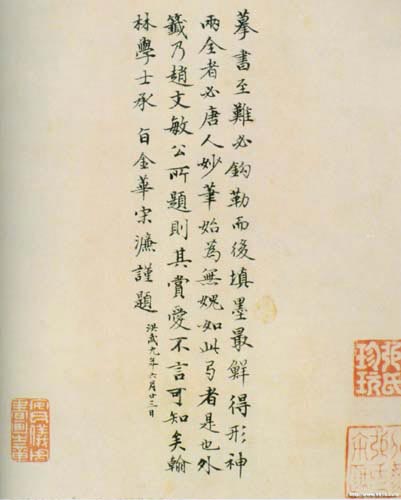 摹書至難必鉤勒而後填墨最鮮得形神
兩全者必唐人妙筆始為無媿如此弓者是也外
籤乃趙文敏公所題則其賞愛不言可知矣翰
林學士承旨金華宋濂謹題 洪武九年六月廿三日
張氏
珍玩
安儀周
書畫之章